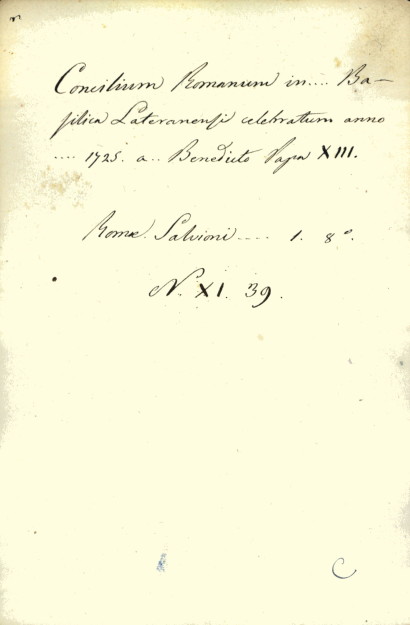 Concilium Romanum in.... Ba-
silica Lateranensi celebratum anno
.... 1725. a.. Benedicto Papa XIII.
Romæ. Salvioni.... 1. 8°.
N. XI. 39.
C